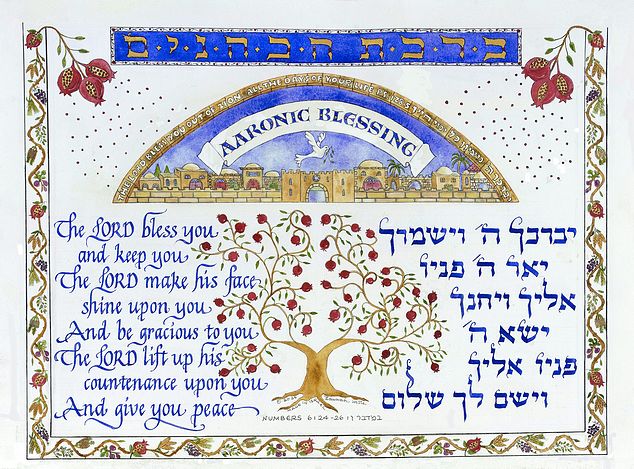 ברכת הכהנים
THE LORD BLESS YOU OUT OF ZION ALL THE DAYS OF YOUR LIFE PS. 128:5
AARONIC BLESSING
The LORD bless you
and keep you
The LORD make his face
shine upon you
And be gracious to you
The LORD lift up his
countenance upon you
And give you peace
יברכך ה׳ וישמרך
יאר ה׳ פניו
אליך ויחנך
ישא ה׳
פניו אליך
וישם לך שלום
NUMBERS 6:24-26 במדבר ו׃